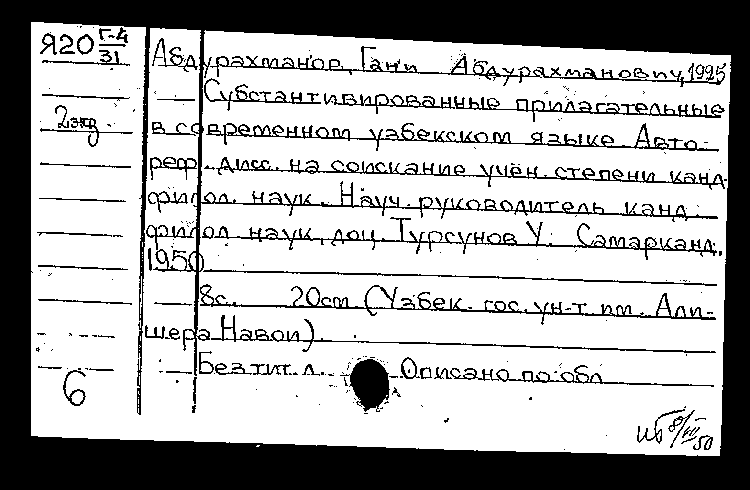 Я20 Г-4/31
Абдурахманов, Гани Абдурахманович, 1925
Субстантивированные прилагательные
2 экз.
в современном узбекском языке. Авто-
реф. дисс. на соискание учён. степени канд.
филол. наук. Науч. руководитель канд.
филол. наук, доц. Турсунов У. Самарканд,
1950
8с. 20см (Узбек. гос. ун-т им. Али-
шера Навои).
Без тит. л. Описано по обл.
6
8/VII 50